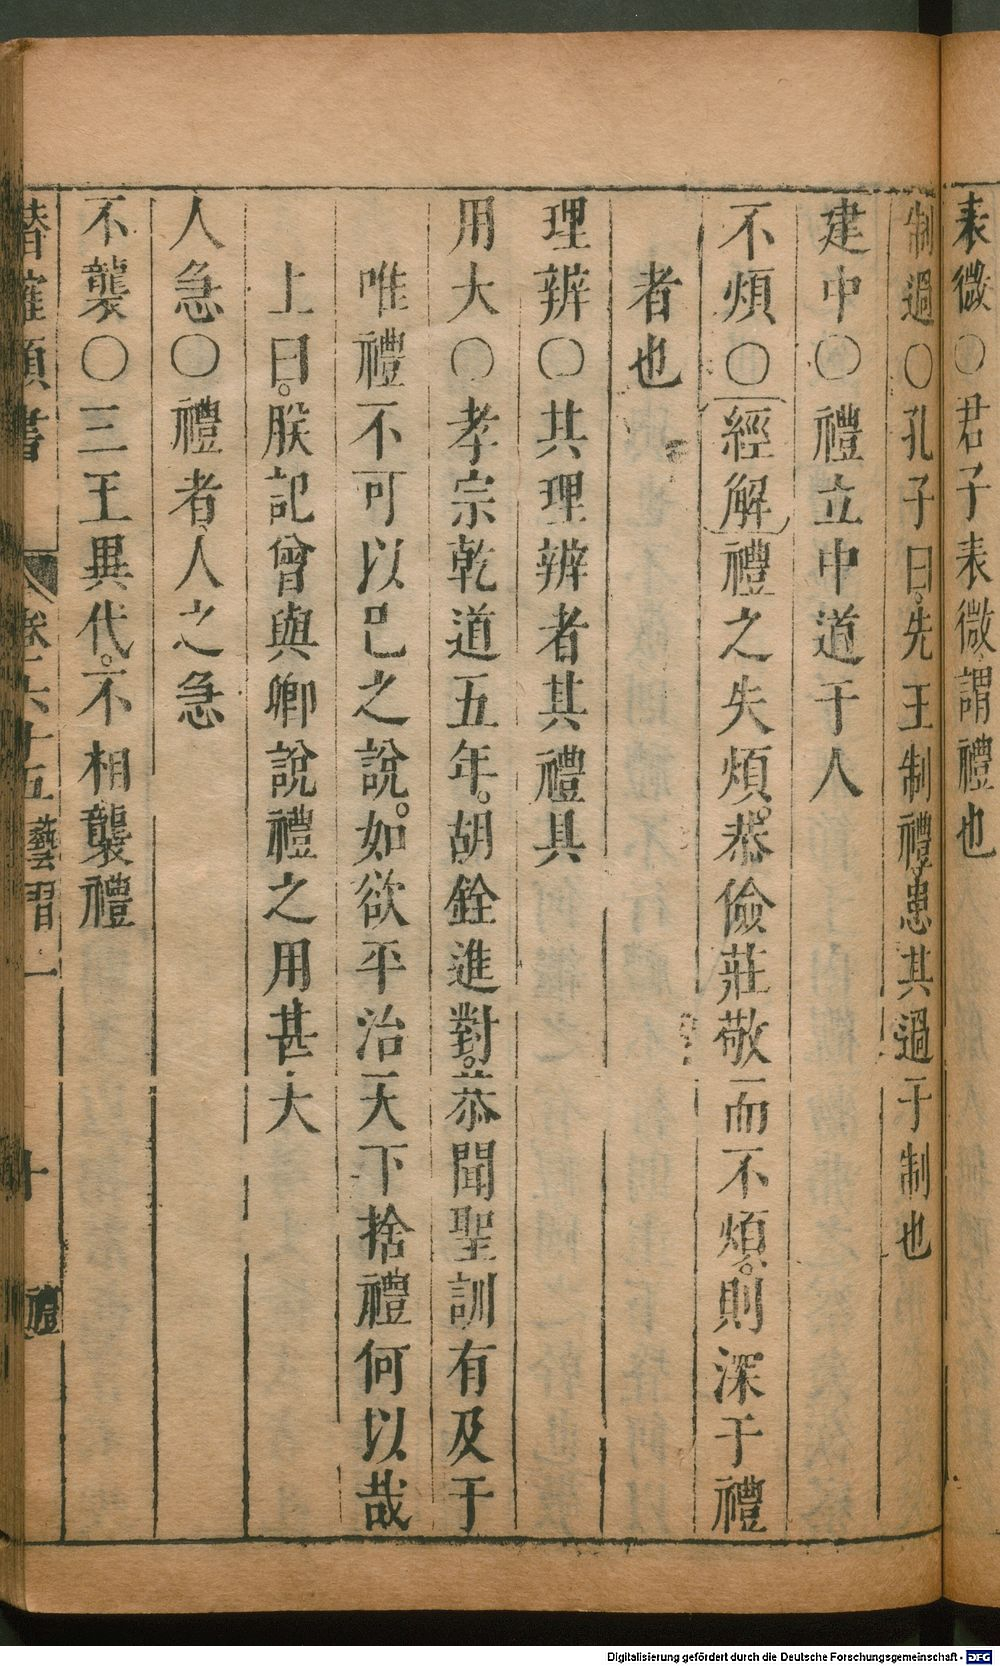 表微○君子表微謂禮也
制過○孔子曰先王制禮患其過于制也
建中○禮立中道于人
不煩○經解禮之失煩。恭儉莊敬而不煩。則深于禮
者也
理辨○其理辨者其禮具
用大○孝宗乾道五年。胡銓進對。恭聞聖訓有及于
唯禮不可以已之說。如欲平治天下捨禮何以哉
上曰。朕記曾與卿說禮之用甚大
人急○禮者、人之急
不襲○三王異代。不相襲禮
類書 卷 六十五 藝習一 十 禮
Digitalisierung gefördert durch die Deutsche Forschungsgemeinschaft - DFG